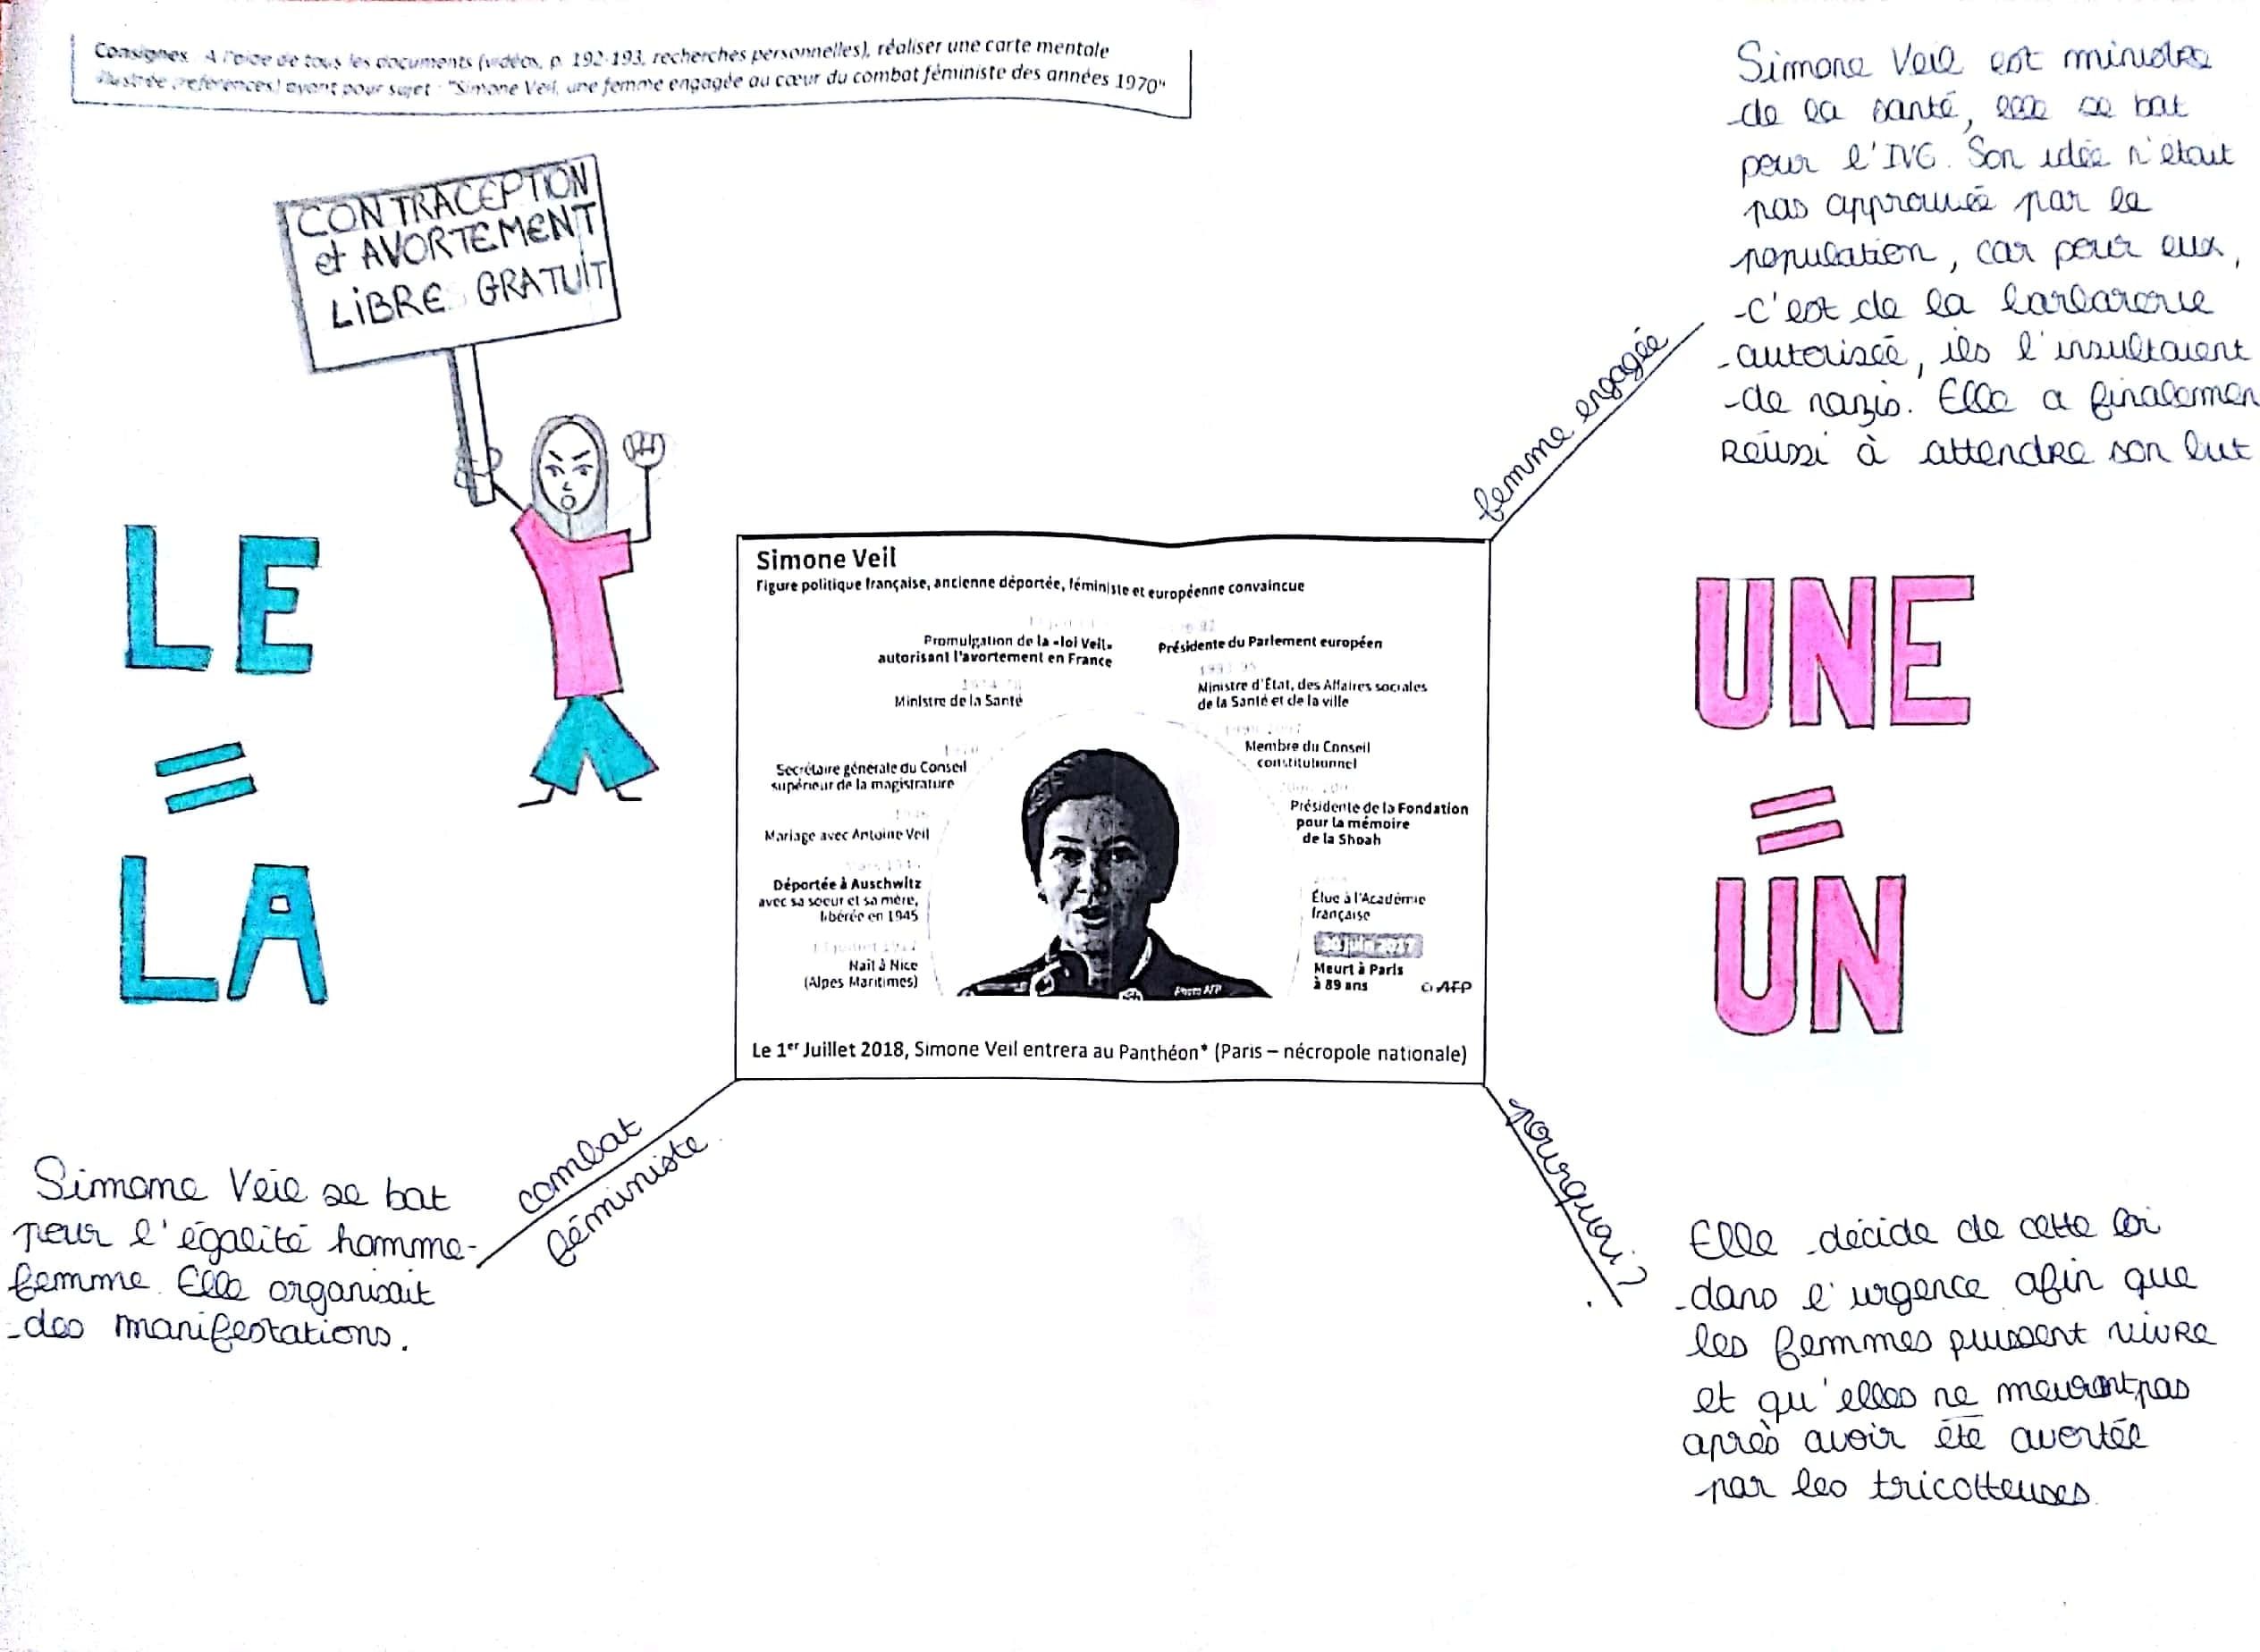 Consignes. A l'aide de tous les documents (vidéos, p. 192-193, recherches personnelles), réaliser une carte mentale
illustrée (références) ayant pour sujet : "Simone Veil, une femme engagée au cœur du combat féministe des années 1970"
CONTRACEPTION
et AVORTEMENT
LiBRE GRATUIT
LE
=
LA
Simone Veil est ministre
de la santé, elle se bat
pour l'IVG. Son idée n'était
pas approuvée par la
population, car pour eux,
c'est de la barbarerie
autorisée, ils l'insultaient
de nazis. Elle a finalemen
Réussi à attendre son but
femme engagée
Simone Veil
Figure politique française, ancienne déportée, féministe et européenne convaincue
Promulgation de la «loi Veil»
autorisant l'avortement en France
Ministre de la Santé
Secrétaire générale du Conseil
supérieur de la magistrature
Mariage avec Antoine Veil
Déportée à Auschwitz
avec sa soeur et sa mère,
libérée en 1945
Naît à Nice
(Alpes Maritimes)
Présidente du Parlement européen
Ministre d'État, des Affaires sociales
de la Santé et de la ville
Membre du Conseil
constitutionnel
Présidente de la Fondation
pour la mémoire
de la Shoah
Élue à l'Académie
française
30 juin 2017
Meurt à Paris
à 89 ans
© AFP
Photo AFP
Le 1er Juillet 2018, Simone Veil entrera au Panthéon* (Paris – nécropole nationale)
UNE
=
UN
combat
féministe
Simone Veil se bat
pour l'égalité homme-
femme. Elle organisait
des manifestations.
pourquoi?
Elle décide de cette loi
dans l'urgence afin que
les femmes puissent vivre
et qu'elles ne meurent pas
après avoir été avortée
par les tricotteuses.